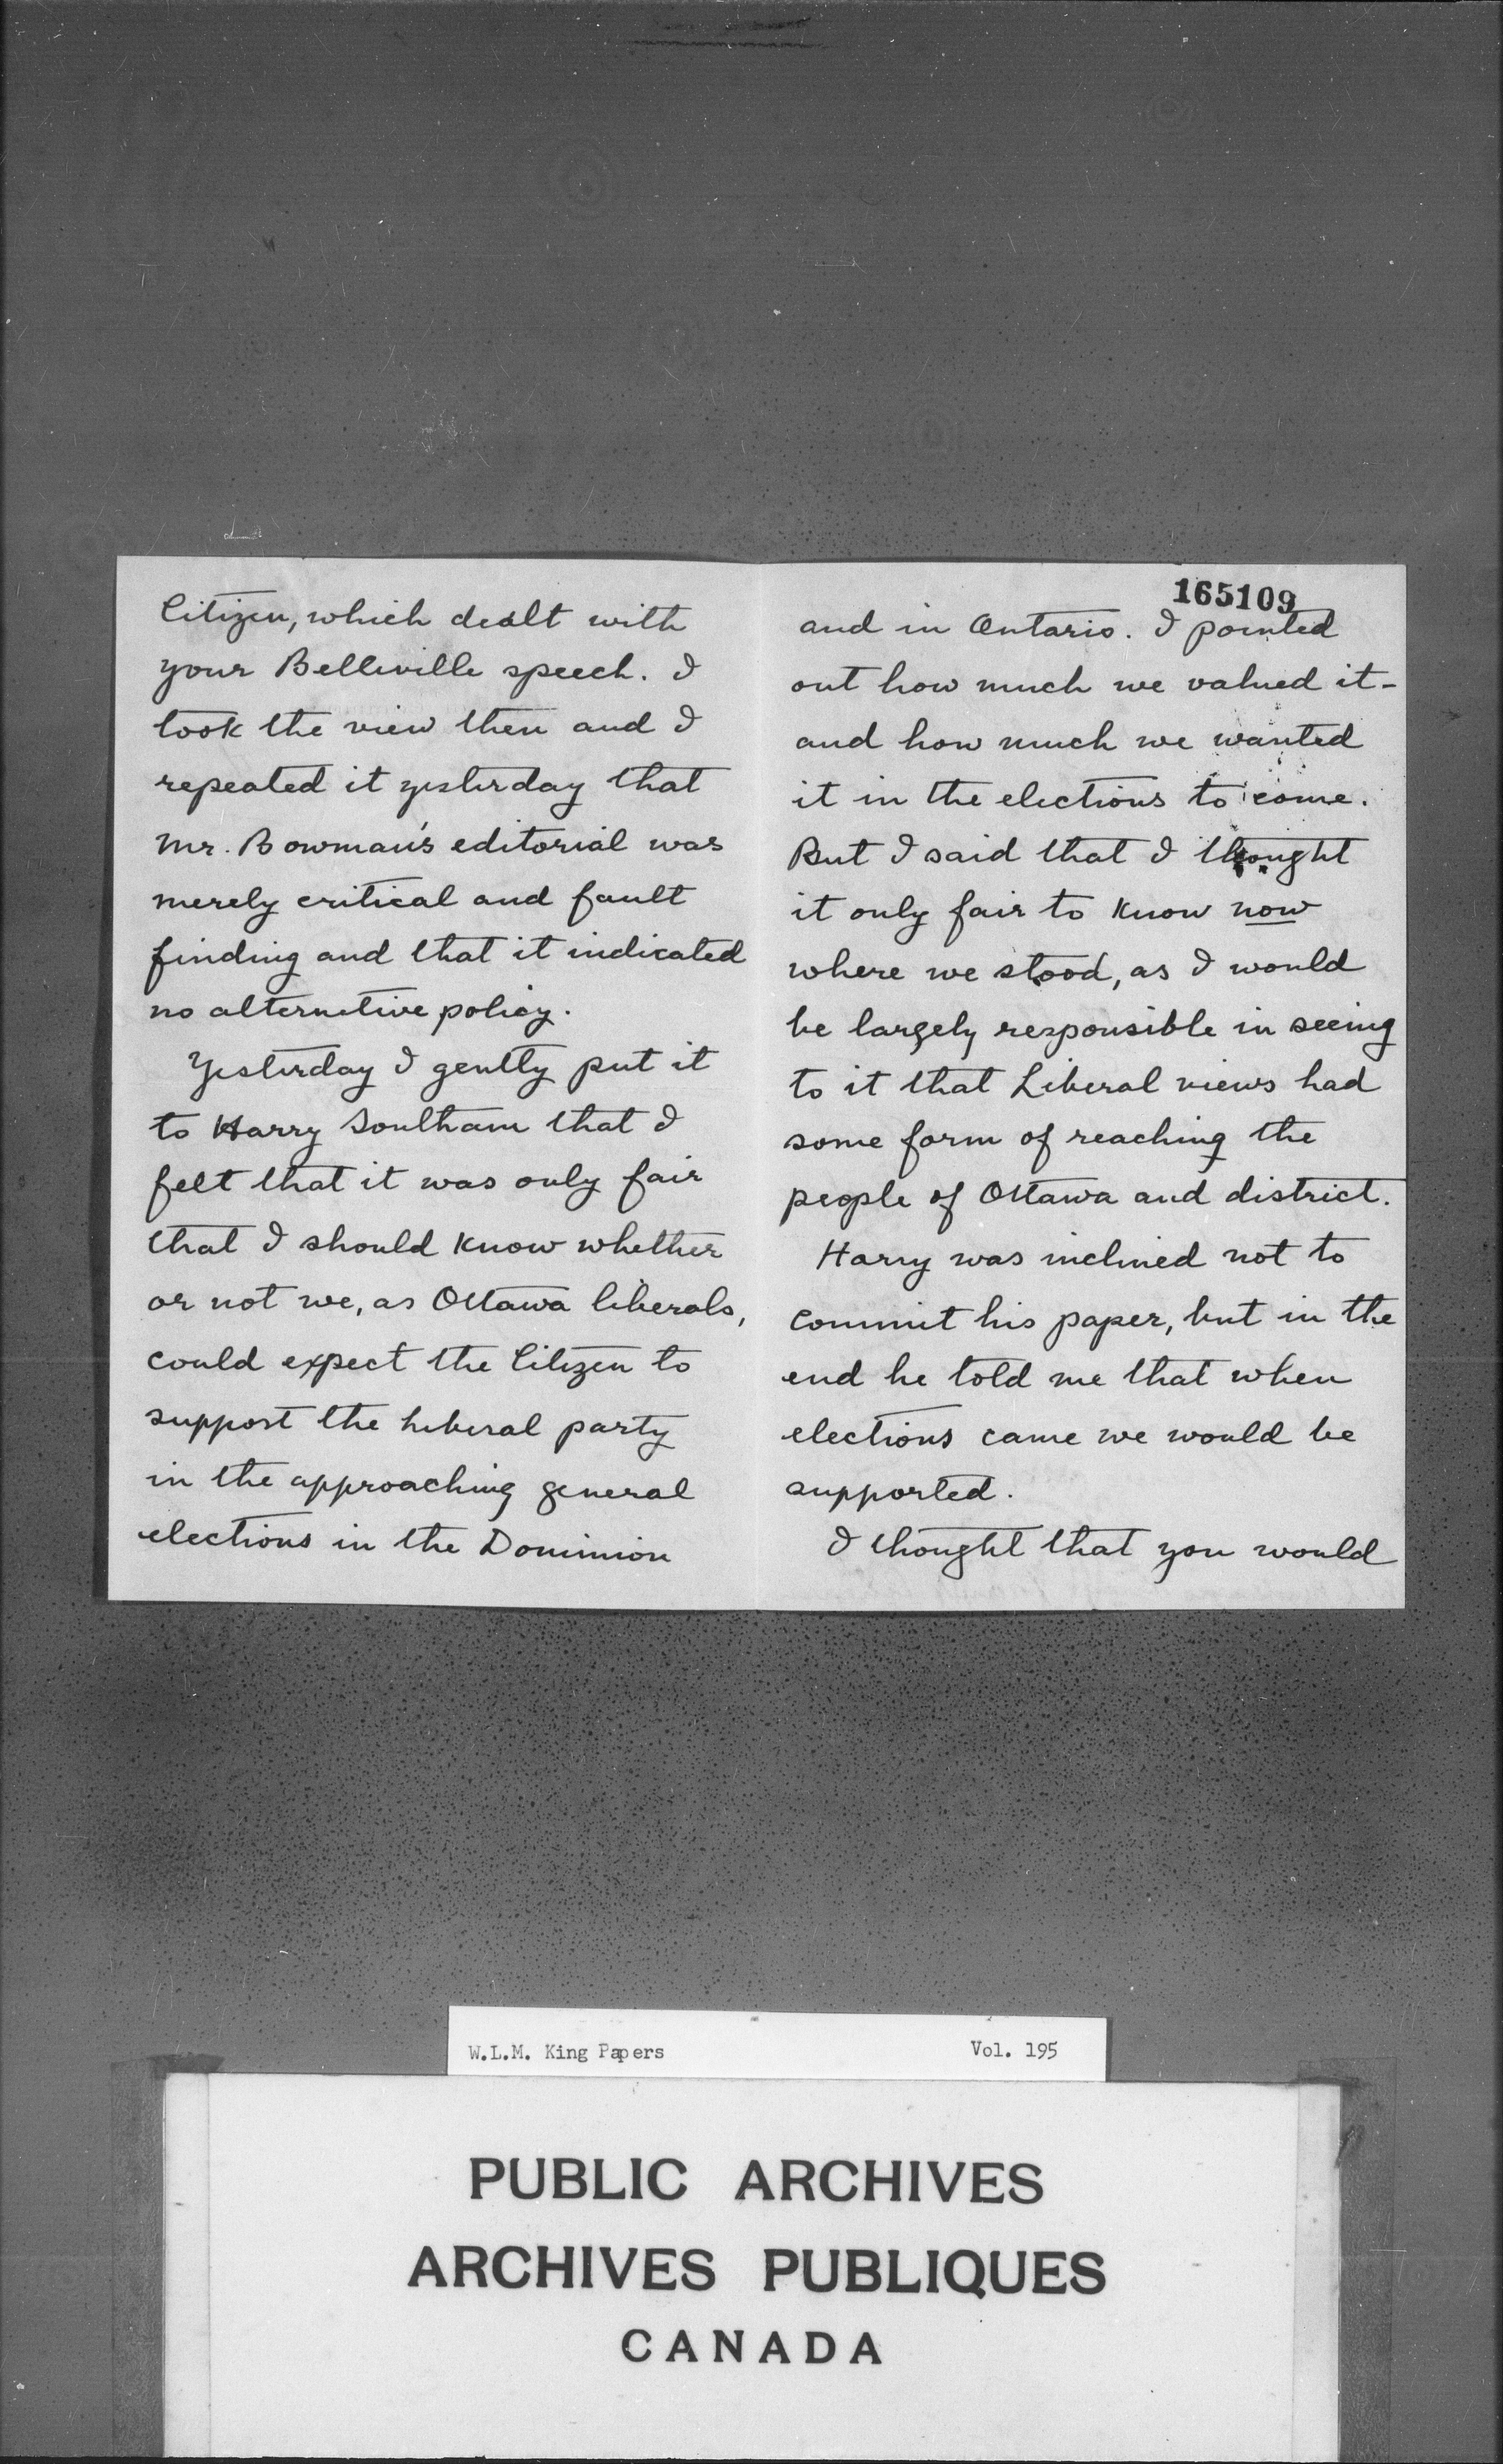 Citizen, which dealt with
your Belleville speech. I
took the view then and I
repeated it yesterday that
Mr. Bowman's editorial was
merely critical and fault
finding and that it indicated
no alternative policy.
Yesterday I gently put it
to Harry Southam that I
felt that it was only fair
that I should know whether
or not we, as Ottawa liberals,
could expect the Citizen to
support the Liberal party
in the approaching general
elections in the Dominion
165109
and in Ontario. I pointed
out how much we valued it-
and how much we wanted
it in the elections to come.
But I said that I thought
it only fair to know now
where we stood, as I would
be largely responsible in seeing
to it that Liberal views had
some form of reaching the
people of Ottawa and district.
Harry was inclined not to
commit his paper, but in the
end he told me that when
elections came we would be
supported.
I thought that you would
W.L.M. King Papers Vol. 195
PUBLIC ARCHIVES
ARCHIVES PUBLIQUES
CANADA